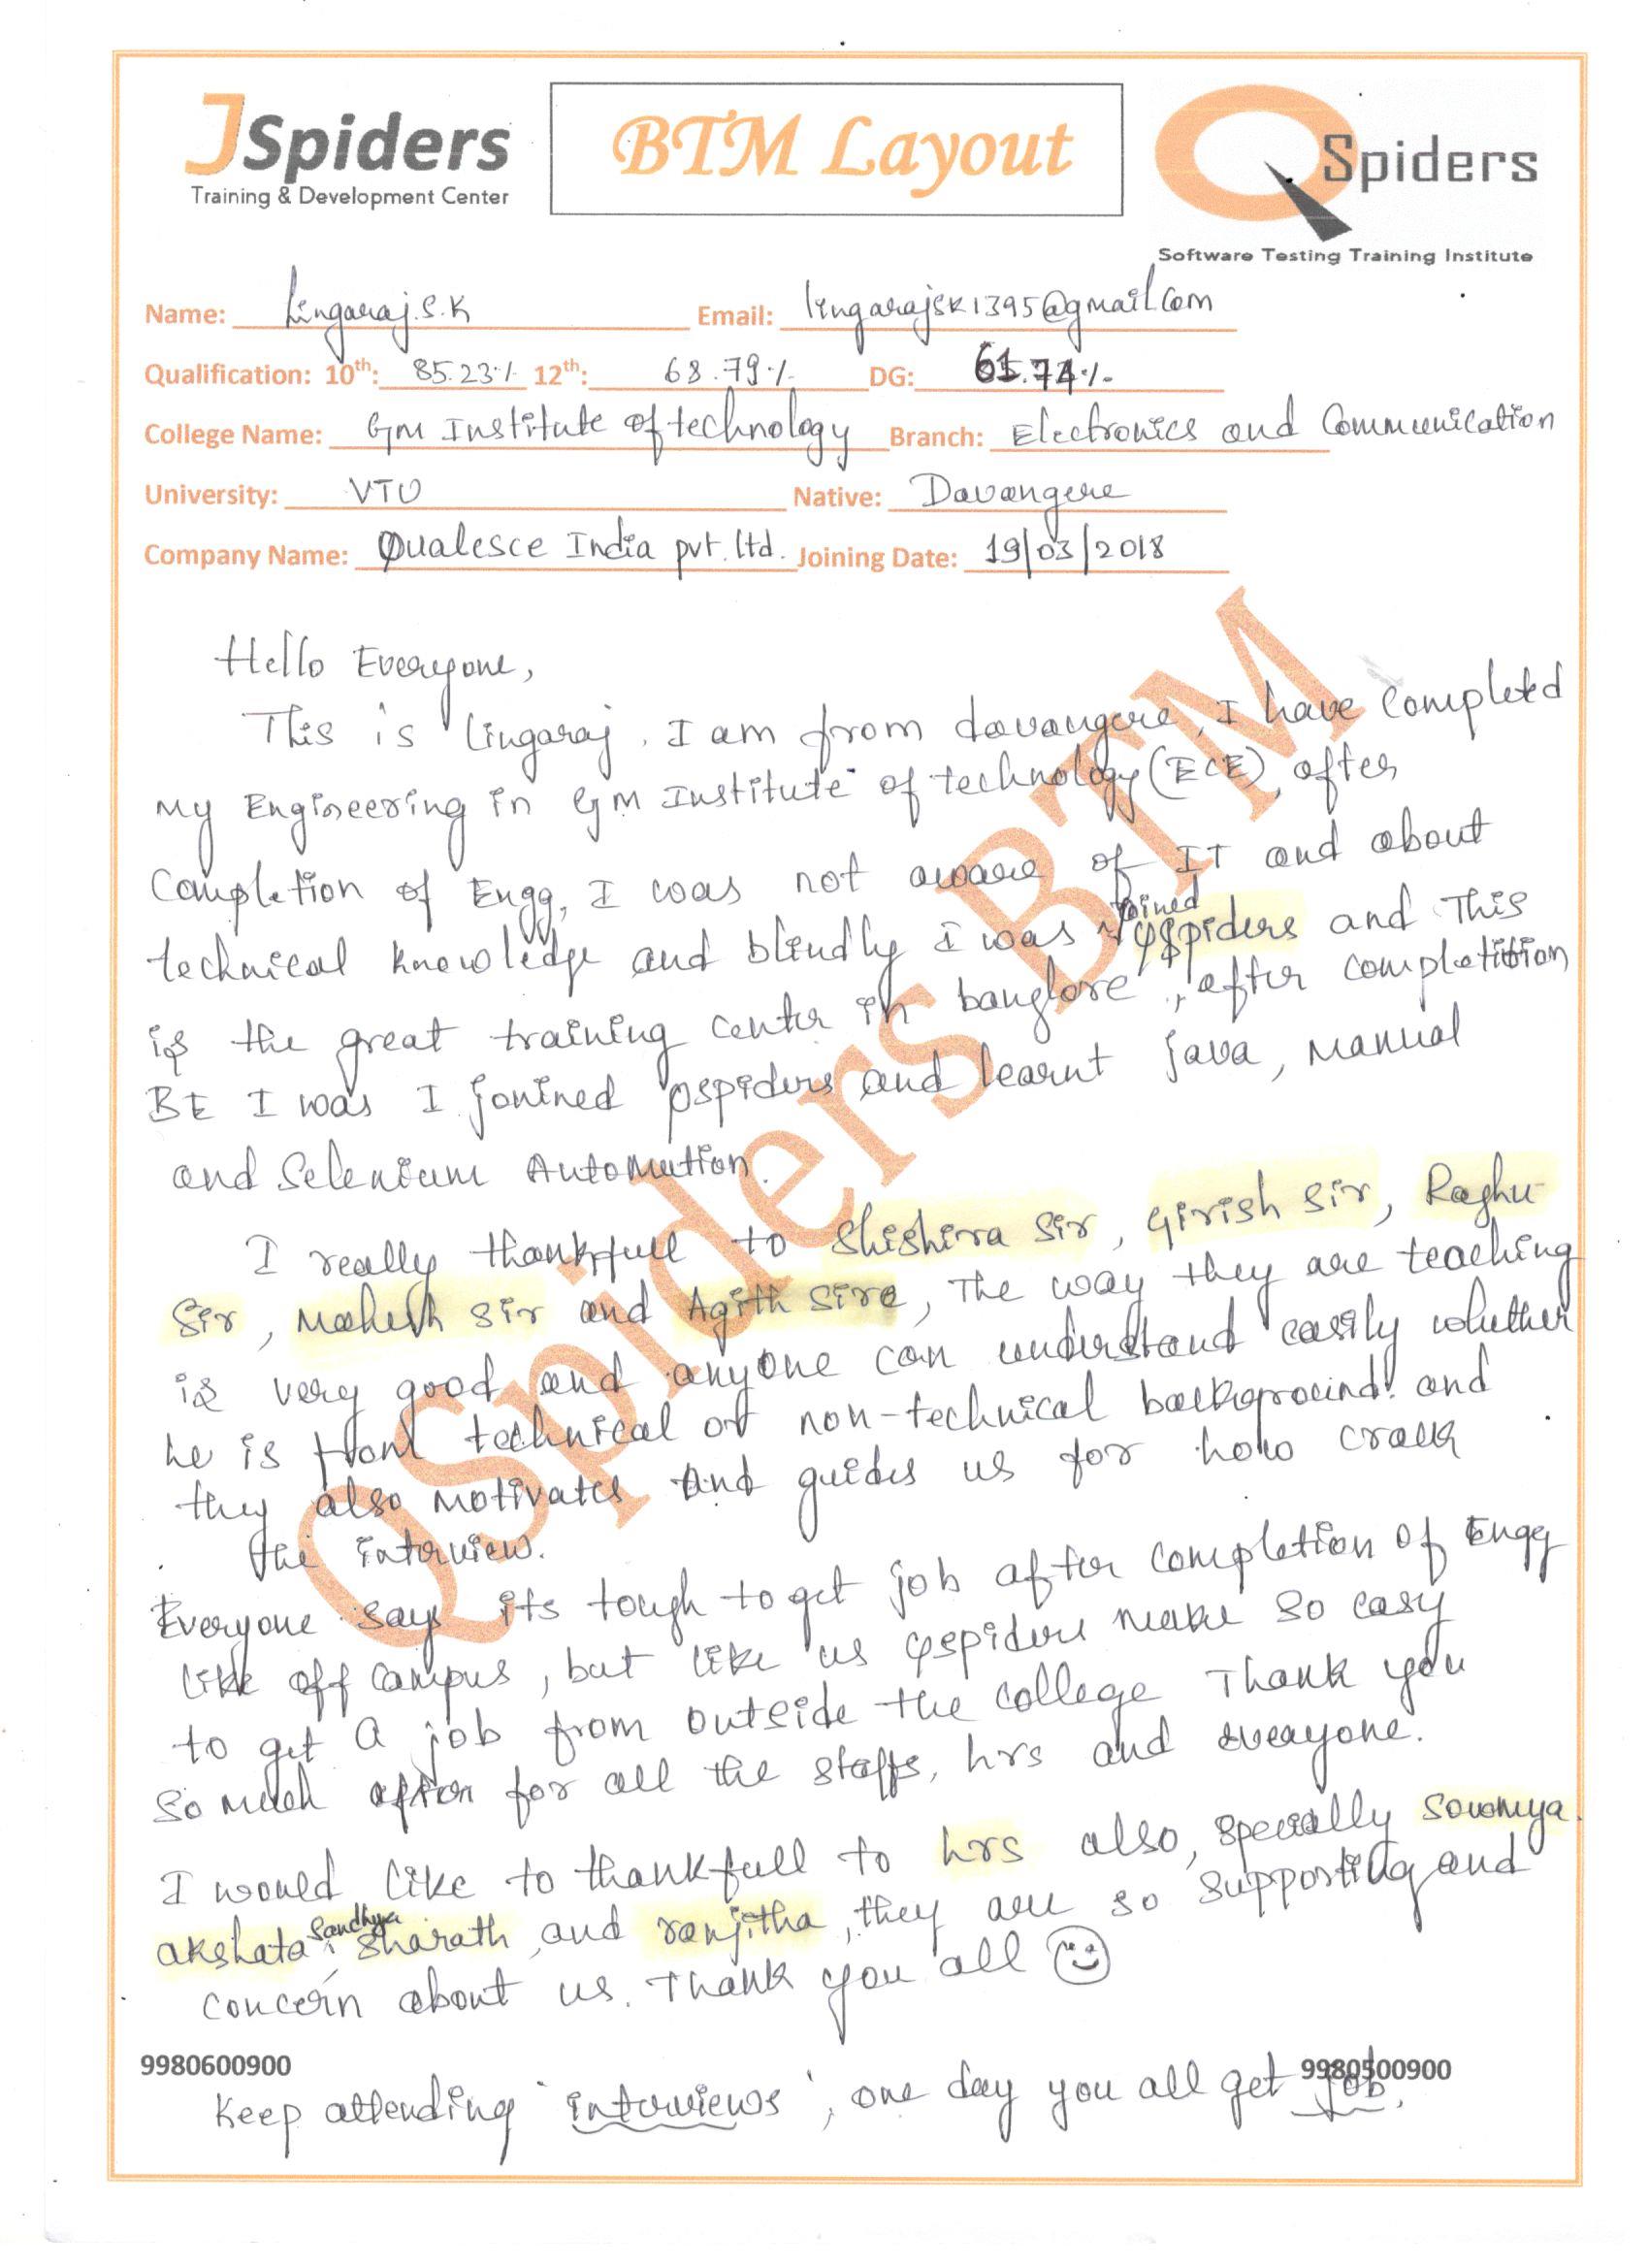 JSpiders
Training & Development Center
BTM Layout
QSpiders
Software Testing Training Institute
Name: Lingaraj.S.K Email: lingarajsk1395@gmail.com
Qualification: 10th: 85.23% 12th: 68.79% DG: 61.74%
College Name: GM Institute of technology Branch: Electronics and Communication
University: VTU Native: Davangere
Company Name: Qualesce India pvt. ltd. Joining Date: 19/03/2018
Hello Everyone,
This is Lingaraj. I am from davangere, I have completed
my Engineering in GM Institute of technology (ECE), after
Completion of Engg, I was not aware of IT and about
technical knowledge and blindly I was joined Qspiders and This
is the great training center in banglore, after completition
BE I was I jonined Qspiders and learnt java, Manual
and Selenium Automation.
I really thankfull to Shishira Sir, Girish Sir, Raghu
Sir, Mahesh Sir and Agith Sire, The way they are teaching
is very good and anyone can understand easily whether
he is from technical or non-technical background. and
they also motivates and guides us for how crack
the interview.
Everyone says its tough to get job after completion of Engg
like off campus, but like us Qspiders make so easy
to get a job from outside the college Thank you
so much for all the staffs, hrs and everyone.
I would like to thankfull to hrs also, specially Sowmya.
akshata, Sandhya, Sharath, and ranjitha, they are so supporting and
concern about us. Thank you all
9980600900 9980500900
Keep attending 'interviews', one day you all get job.
QSpiders BTM